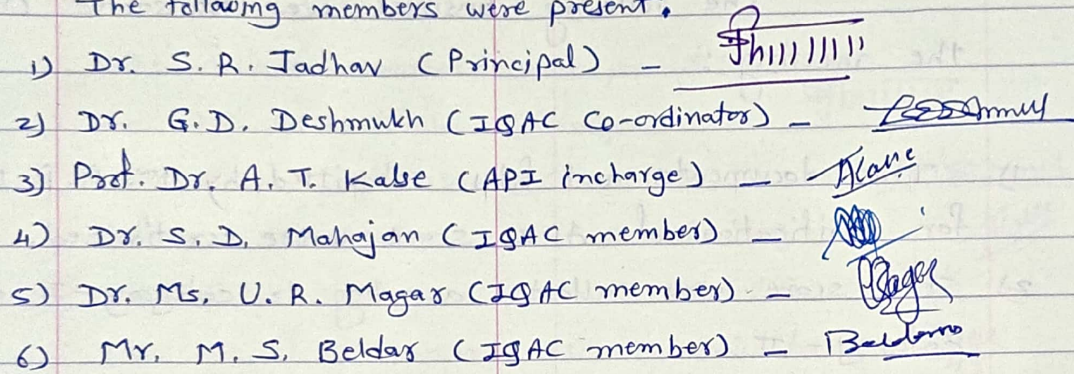 The following members were present.
1) Dr. S. R. Jadhav (Principal) -
2) Dr. G. D. Deshmukh (IQAC Co-ordinator) -
3) Prof. Dr. A. T. Kalse (API incharge) -
4) Dr. S. D. Mahajan (IQAC member) -
5) Dr. Ms. U. R. Magar (IQAC member) -
6) Mr. M. S. Beldar (IQAC member) -